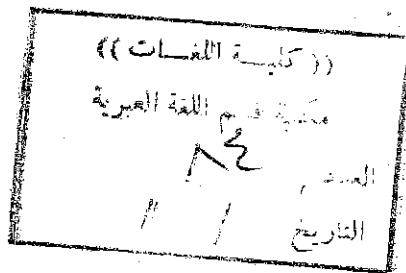 (( كليــة اللغــات ))
مكتبة قسم اللغة العبرية
العدد / ٨٤
التاريخ / /